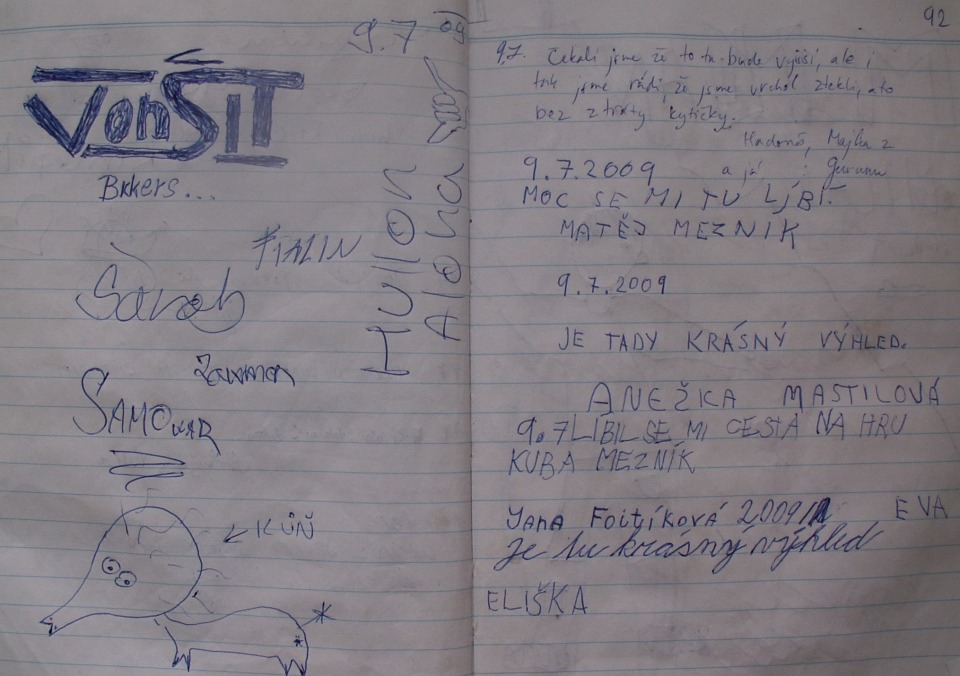 9.7 09
VONŠIT
Bikers...
FIALIN
Sarah
SAMOVAR
KŮŇ
Alona
92
9.7. Čekali jsme že to tu bude vyšší, ale i
tak jsme rádi, že jsme vrchol ztekli, a to
bez ztráty kytičky.
Majka z
9.7.2009 a já :
MOC SE MI TU LÝBÍ.
MATĚJ MEZNIK
9.7.2009
JE TADY KRÁSNÝ VÝHLED.
ANEŽKA MASTILOVÁ
9.7 LIBIL SE MI CESTA NA HRU
KUBA MEZNÍK
Jana Foitíková 2009 EVA
je tu krásný výhled
ELIŠKA